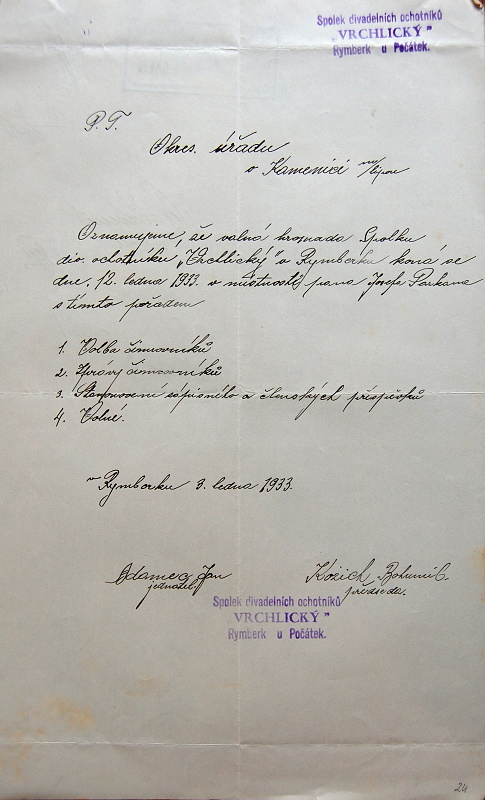 Spolek divadelních ochotníků
„VRCHLICKÝ”
Rymberk u Počátek.
P. T.
Okres. úřadu
v Kamenici n/Lipou
Oznamujeme, že valná hromada Spolku
div. ochotníku „Vrchlický" v Rymberku koná se
dne. 12. ledna 1933. v místnosti pana Josefa Parkana
s tímto pořadem
1. Volba činovníků
2. Zprávy činovníků
3. Stanovení zápisného a členských příspěvků
4. Volné.
v Rymberku 3. ledna 1933.
Adamec Jan
jednatel.
Kožich Bohumil.
předseda.
Spolek divadelních ochotníků
„VRCHLICKÝ”
Rymberk u Počátek.
24